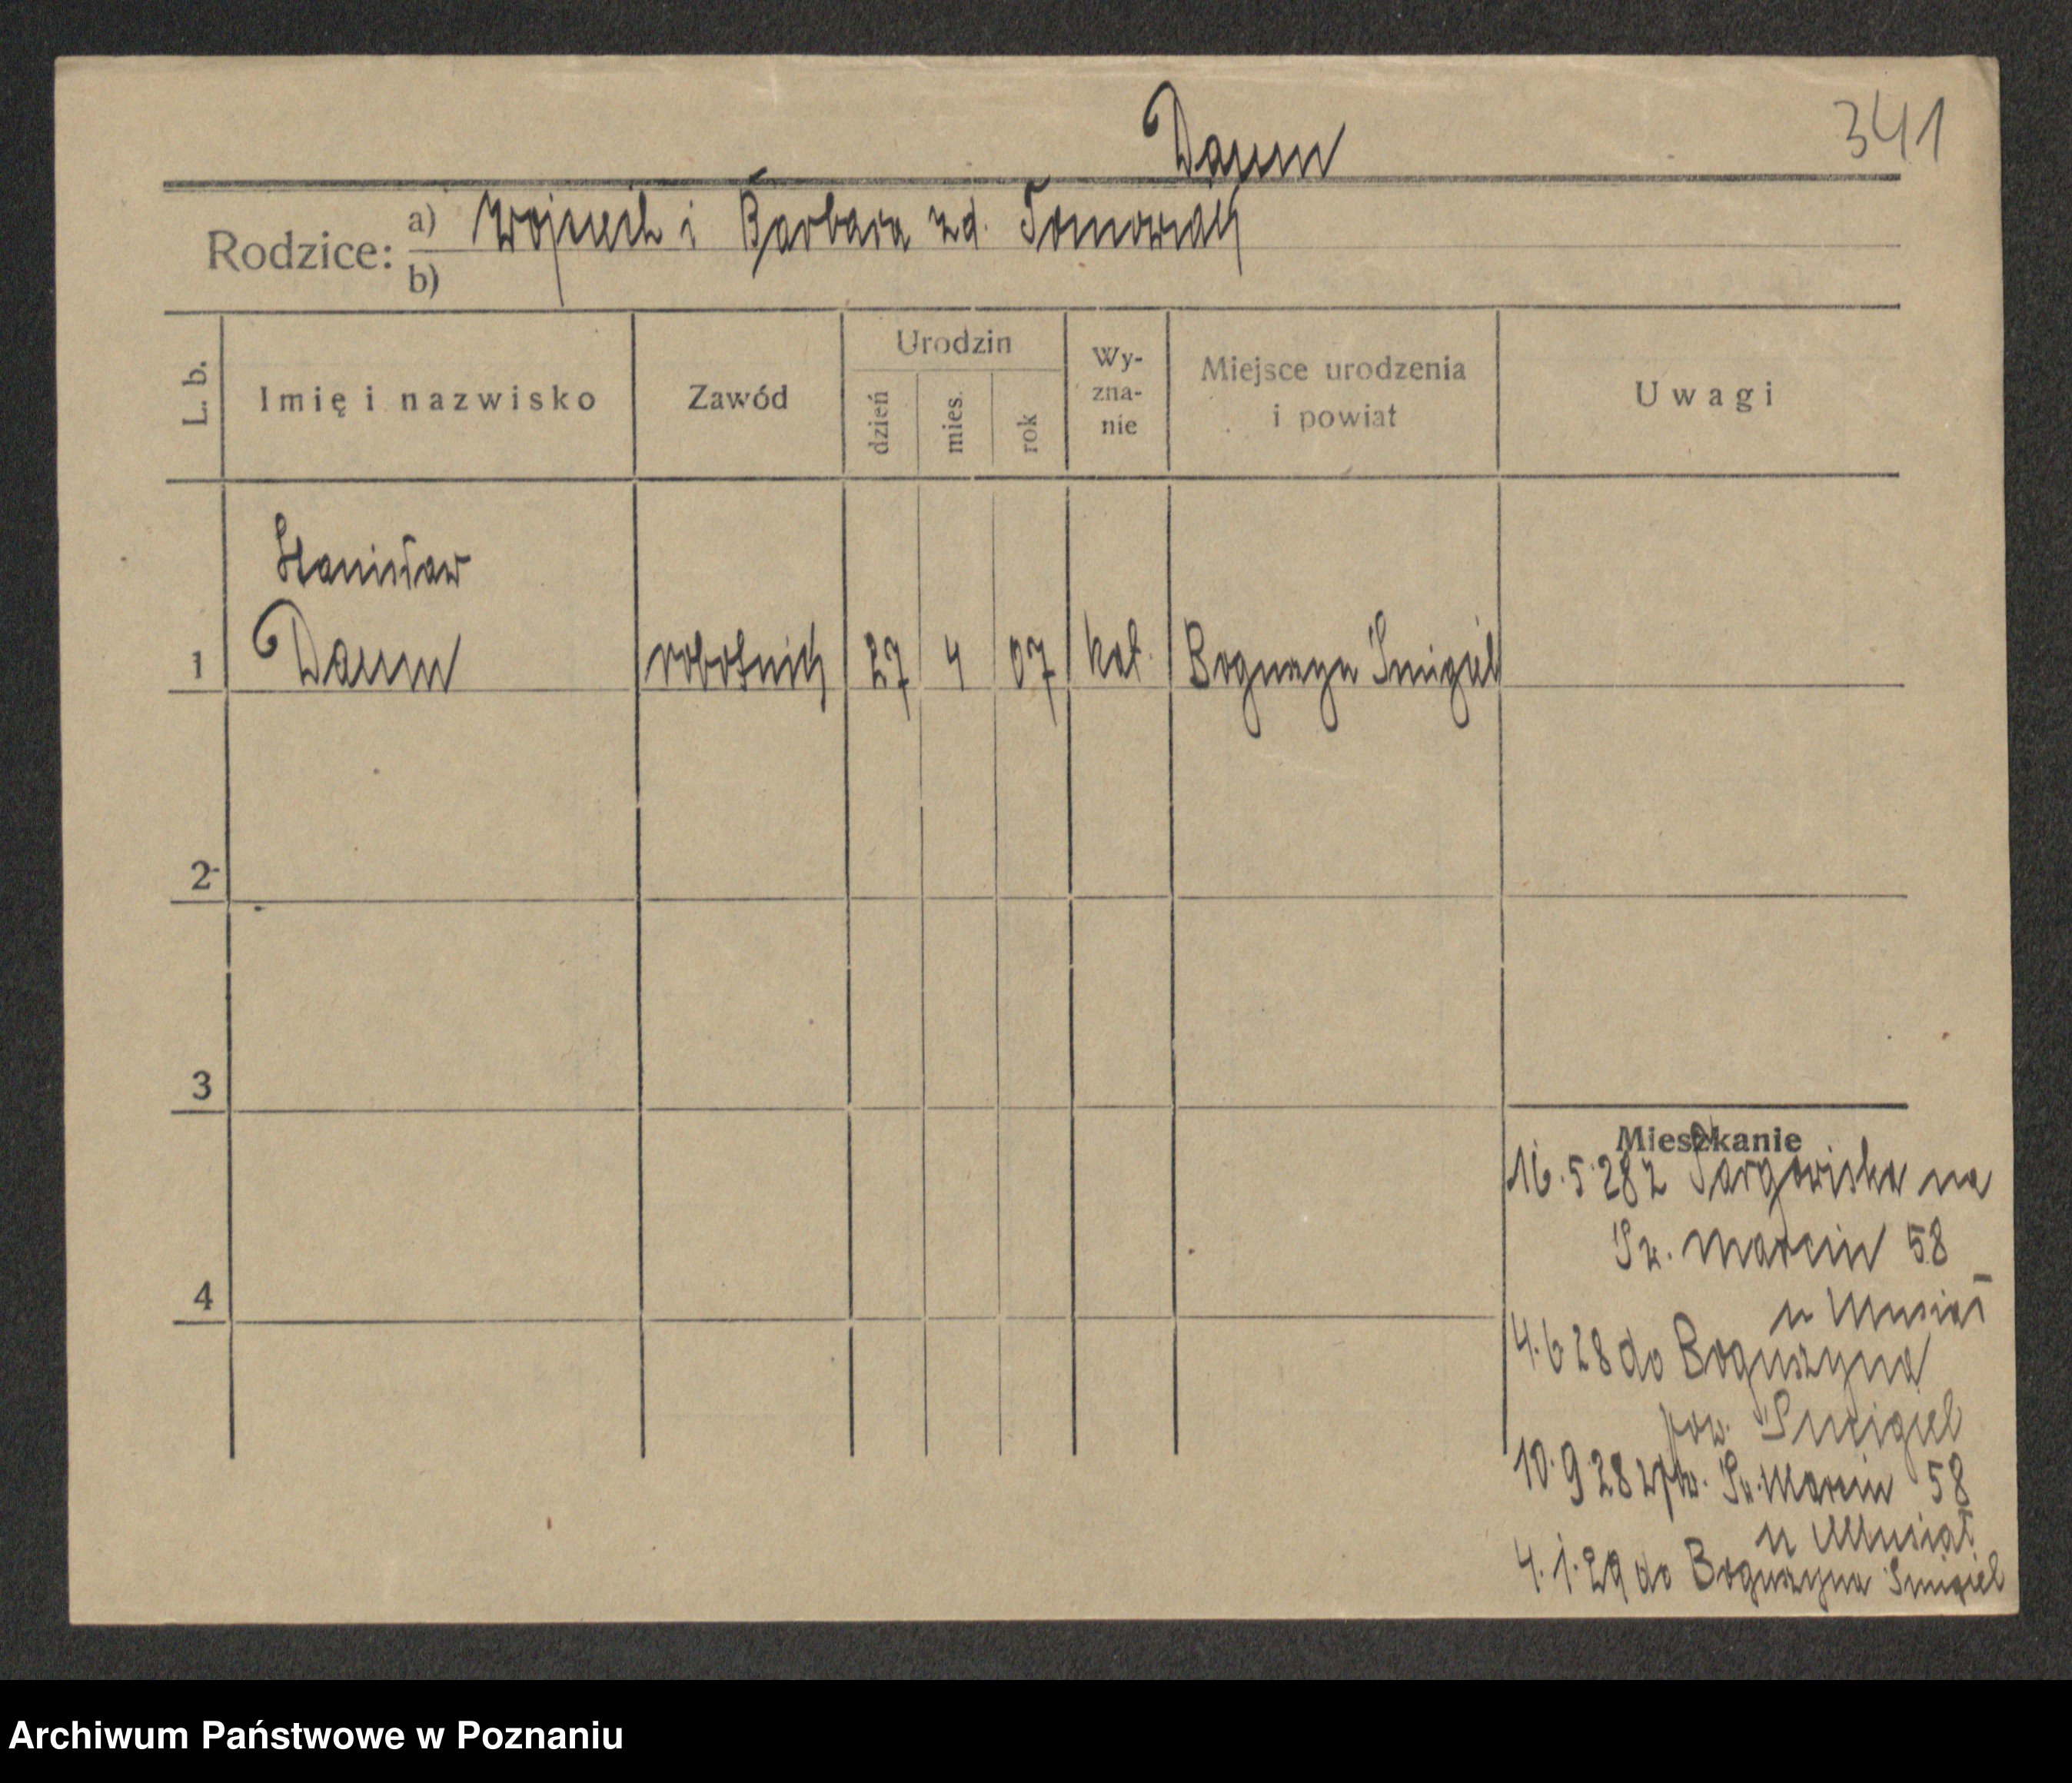 Daum
341
Rodzice: a) Wojciech i Barbara zd. Tomowiak
b)
L. b.
Imię i nazwisko
Zawód
Urodzin
dzień
mies.
rok
Wy-
zna-
nie
Miejsce urodzenia
i powiat
Uwagi
Stanisław
1 Daum robotnik 27 4 07 kat. Boguszyn Śmigiel
2
3
4
Mieszkanie
16.5.28 z Targowiska na
Św. Marcin 58
u Musiał
4.6 28 do Boguszyna
pow. Śmigiel
10.9.28 Św. Marcin 58
u Musiał
4.1.29 do Boguszyna Śmigiel
Archiwum Państwowe w Poznaniu